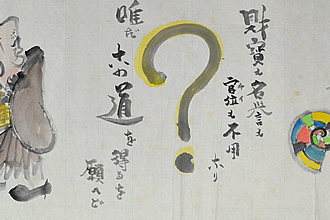 財寶も名誉も
官位も不用
なり
?
唯だ
この道を得るを
願へど